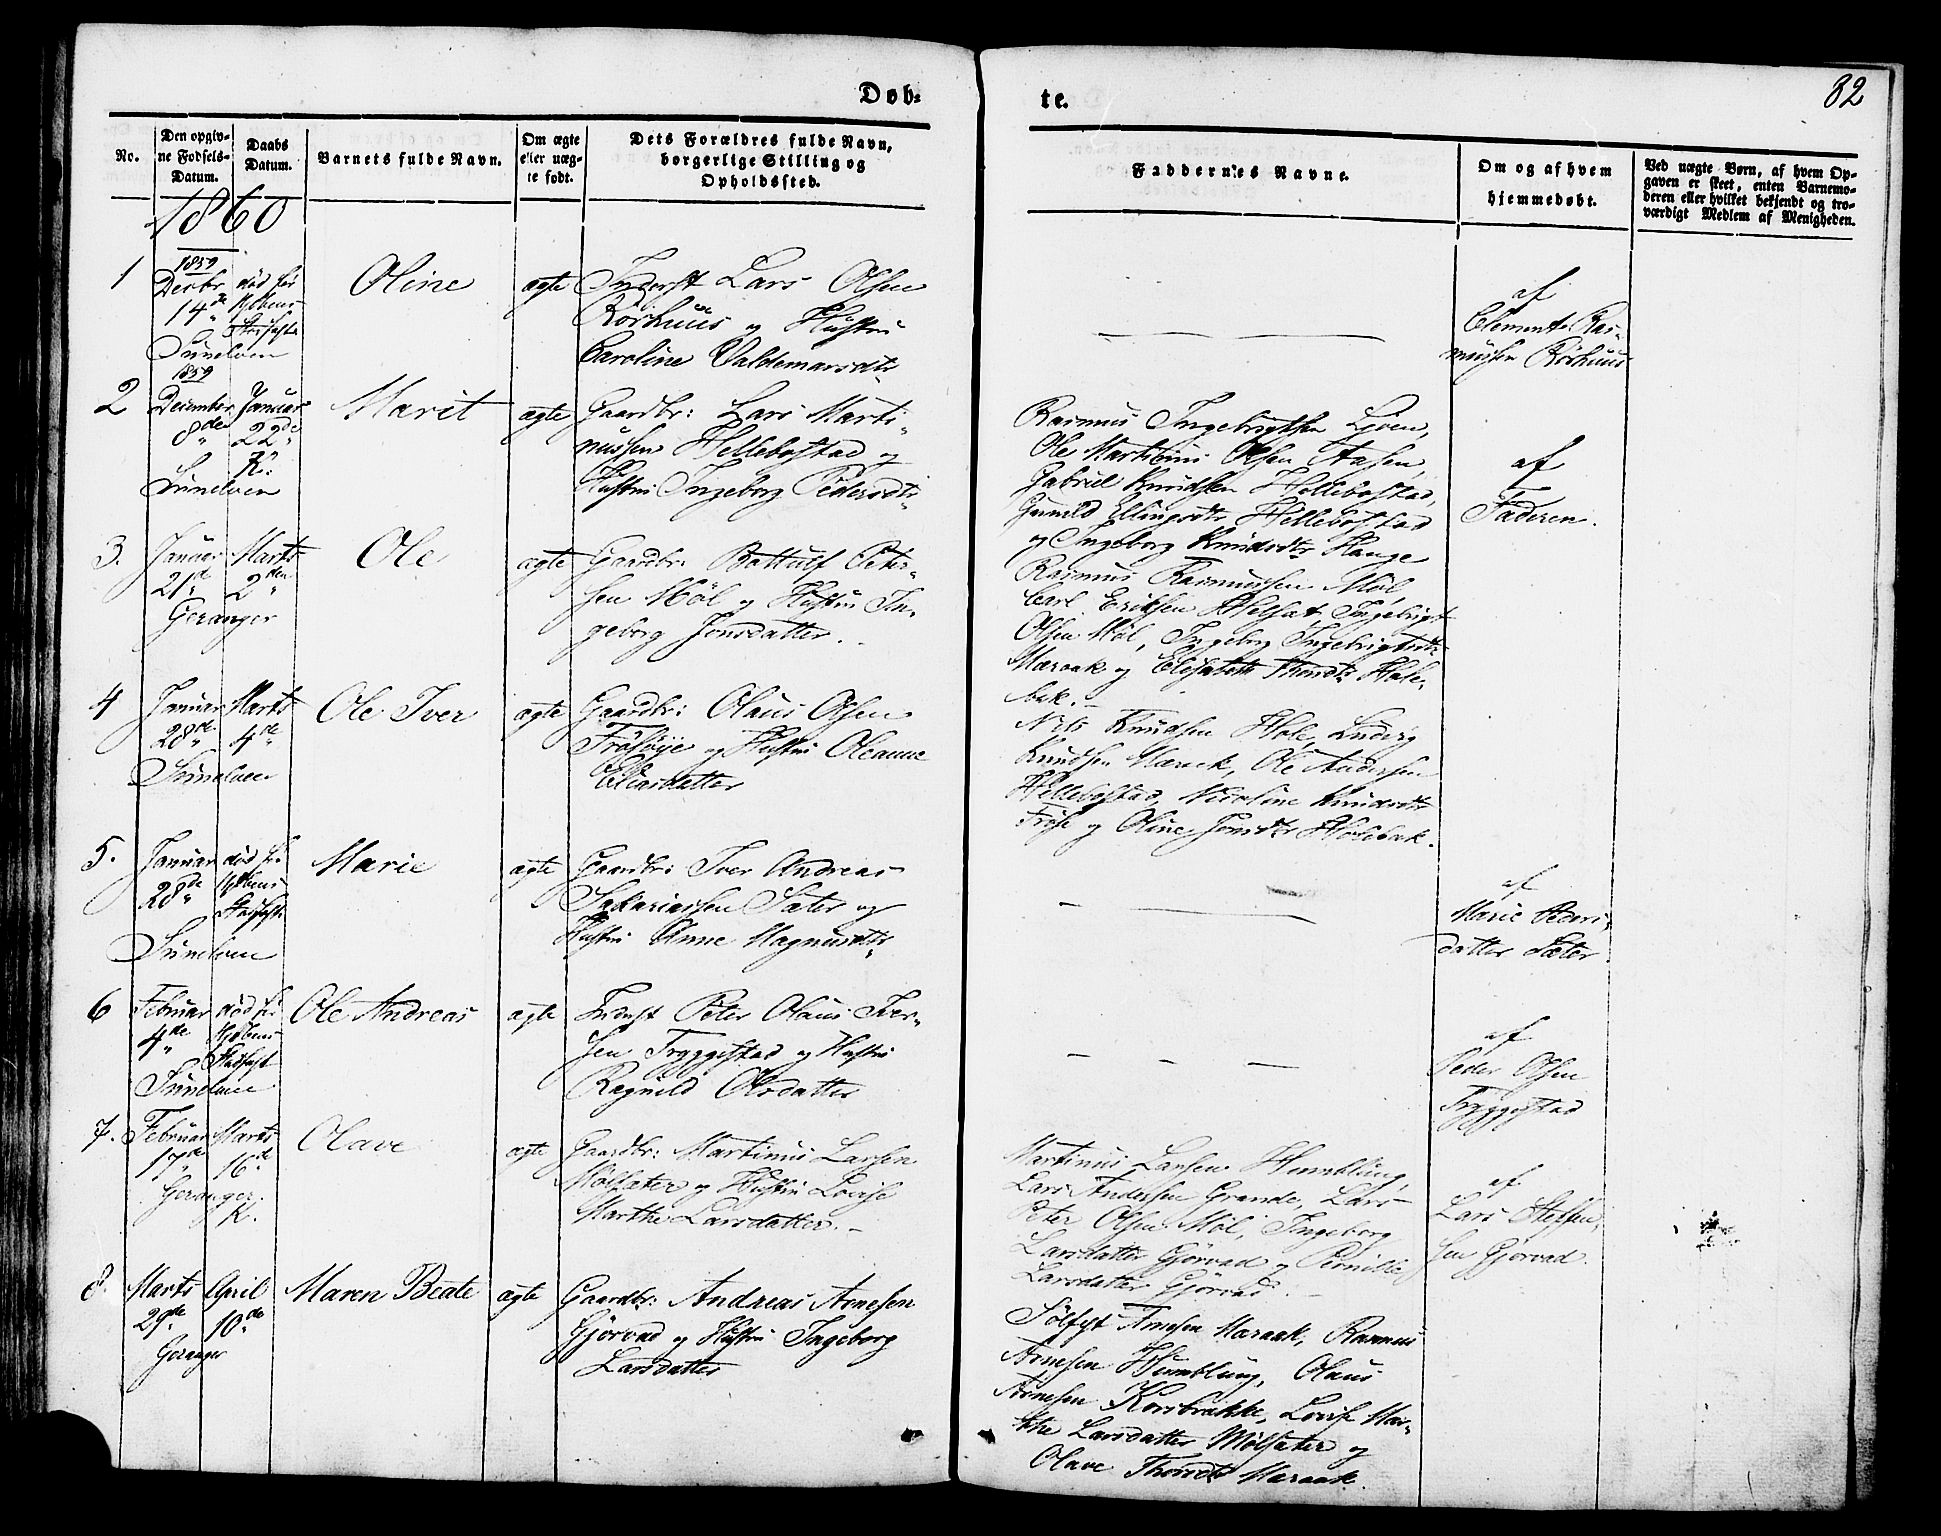 Døb-
te.
82
No.
Den opgiv-
ne Fødsels-
Datum.
Daabs
Datum.
Barnets fulde Navn.
Om ægte
eller uæg-
te født.
Dets Forældres fulde Navn,
borgerlige Stilling og
Opholdssted.
Faddernes Navne.
Om og af hvem
hjemmedøbt.
Ved uægte Børn, af hvem Op-
gaven er skeet, enten Barnemo-
deren eller hvilket bekjendt og tro-
værdigt Medlem af Menigheden.
1860
1
1859
Decbr
14de
Sunelven
død før
Oline
ægte
Inderst Lars Olsen
Rörhuus og Hustru
Caroline Valdemarsdtr
af
Clement Ras-
mussen Rörhuus
2
1859
December
8de
Sunelven
Januar
22de
K.
Marit
ægte
Gaardbr: Lars Marti-
nussen Hellebostad og
Hustru Ingeborg Pedersdtr
Rasmus Ingebrigtsen Ljøen,
Ole Martinus Olsen Aasen,
Gabriel Knudsen Hellebostad,
Gunild Ellingsdtr Hellebostad
og Ingeborg Knudsdtr Hauge
af
Faderen.
3.
Januar
21de
Geranger
Marts
2den
Ole
ægte
Gaardbr: Bottulf Peter-
sen Möl og Hustru In-
geborg Jonsdatter.
Rasmus Rasmussen Möl,
Carl Eriksen Ingebrigt
Olsen Möl, Ingeborg Ingebrigtsdtr
Maraak og Elisabeth Hole-
bak.
4
Januar
28de
Sunelven
Marts
4de
Ole Iver
ægte
Gaardbr: Olaus Olsen
Frösöye og Hustru Oleanne
Eliasdatter
Nils Knudsen Hole, Ludvig
Knudsen Maraak, Ole Andersen
Hellebostad, Nicoline Knudsdtr
Fröse og Oline Jonsdtr Holebak.
5.
Januar
28de
Sunelven
død før
Marie
ægte
Gaardbr: Iver Andreas
Sakariassen Sæter og
Hustru Anne Magnusdtr
af
Marie Peders-
datter Sæter.
6
Februar
4de
Sunelven
død før
Ole Andreas
ægte
Inderst Peter Olaus Iver-
sen Tryggestad og Hustru
Ragnild Olsdatter
af
Peder Olsen
Tryggestad
7.
Februar
17de
Geranger.
Marts
16de
K.
Olave
ægte
Gaardbr: Martinus Larsen
Mölsæter og Hustru Lovise
Marthe Larsdatter.
Martinus Larsen Humblung,
Lars Andersen Grande, Lars
Peter Olsen Möl, Ingeborg
Larsdatter Gjörvad og Pernille
Larsdatter Gjörvad.
af
Lars Steffen-
sen Gjörvad.
8.
Marts
29de
Geranger
April
10de
Maren Beate
ægte
Gaardbr: Andreas Arnesen
Gjörvad og Hustru Ingeborg
Larsdatter
Sölfest Arnesen Maraak, Rasmus
Arnesen Humblung, Olaus
Arnesen Korsbrække, Lovise Mar-
the Larsdatter Mölsæter og
Olave Maraak.